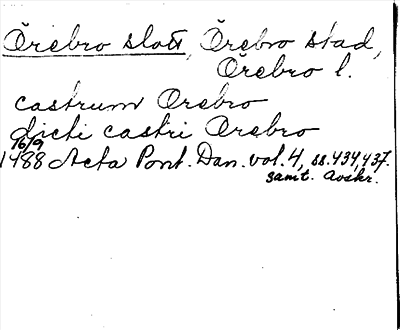 Örebro slott, Örebro stad,
Örebro l.
castrum Orebro
dicti castri Orebro
16/9
1488 Acta Pont. Dan. vol. 4, ss. 434, 437.
samt. avskr.